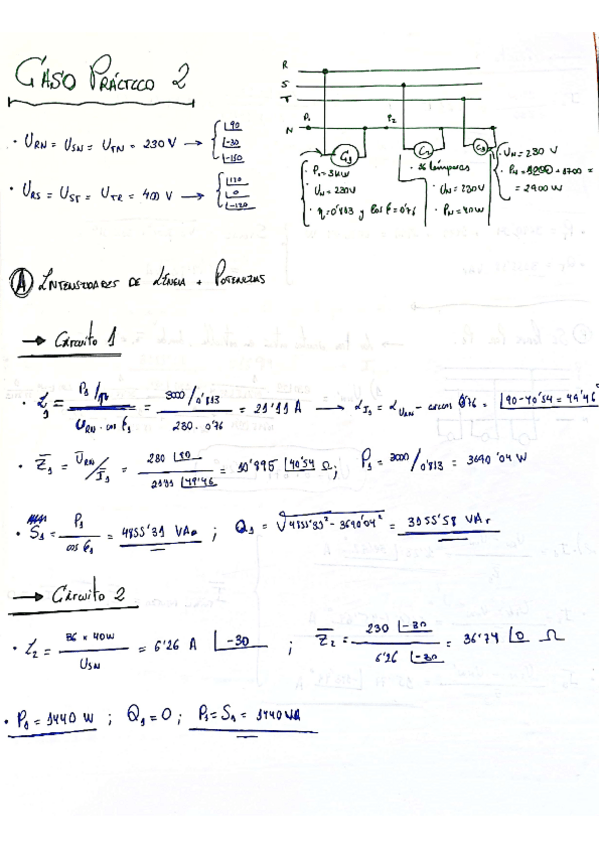 CASO PRÁCTICO 2
R
S
T
N P₁ P₂
C₁ C₂ C₃
· U_RN = U_SN = U_TN = 230 V → { ∟90
∟-30
∟-150
· U_RS = U_ST = U_TR = 400 V → { ∟120
∟0
∟-120
· P₁ = 3kW
· U_N = 230V
· η = 0'813 y cos φ = 0'76
· 36 lámparas
· U_N = 230V
· P_N = 40W
· U_N = 230 V
· P_N = 1200 + 1700 =
= 2900 W
Ⓐ INTENSIDADES DE LÍNEA + POTENCIAS
→ Circuito 1
· I₁ = (P₁/η) / (U_RN · cos φ₁) = (3000/0'813) / (230 · 0'76) = 21'11 A → α_I₁ = α_URN - arccos 0'76 = ∟90-40'54 = 49'46°
· Z̄₁ = Ū_RN / Ī₁ = 230 ∟90 / 21'11 ∟49'46 = 10'895 ∟40'54 Ω ; P₁ = 3000/0'813 = 3690'04 W
· S₁ = P₁ / cos φ₁ = 4855'31 VA ; Q₁ = √(4855'31² - 3690'04²) = 3155'58 VAr
→ Circuito 2
· I₂ = 36 × 40W / U_SN = 6'26 A ∟-30 ; Z̄₂ = 230 ∟-30 / 6'26 ∟-30 = 36'74 ∟0 Ω
· P₁ = 1440 W ; Q₁ = 0 ; P₁ = S₁ = 1440 VA